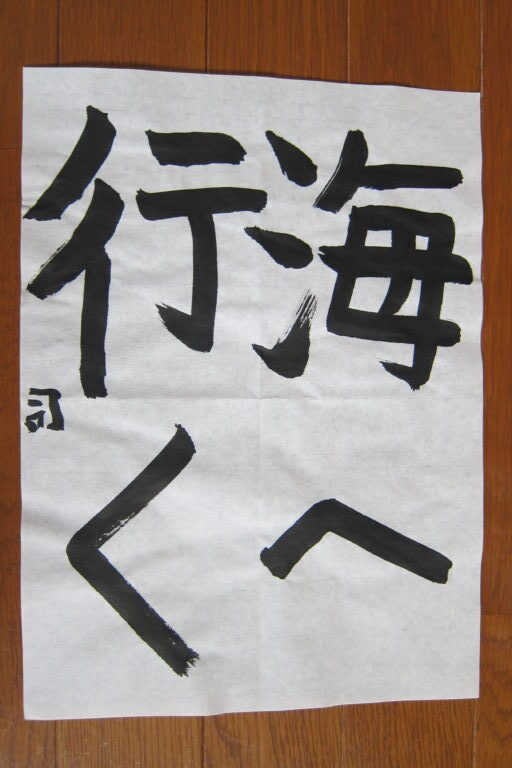 海へ
行く